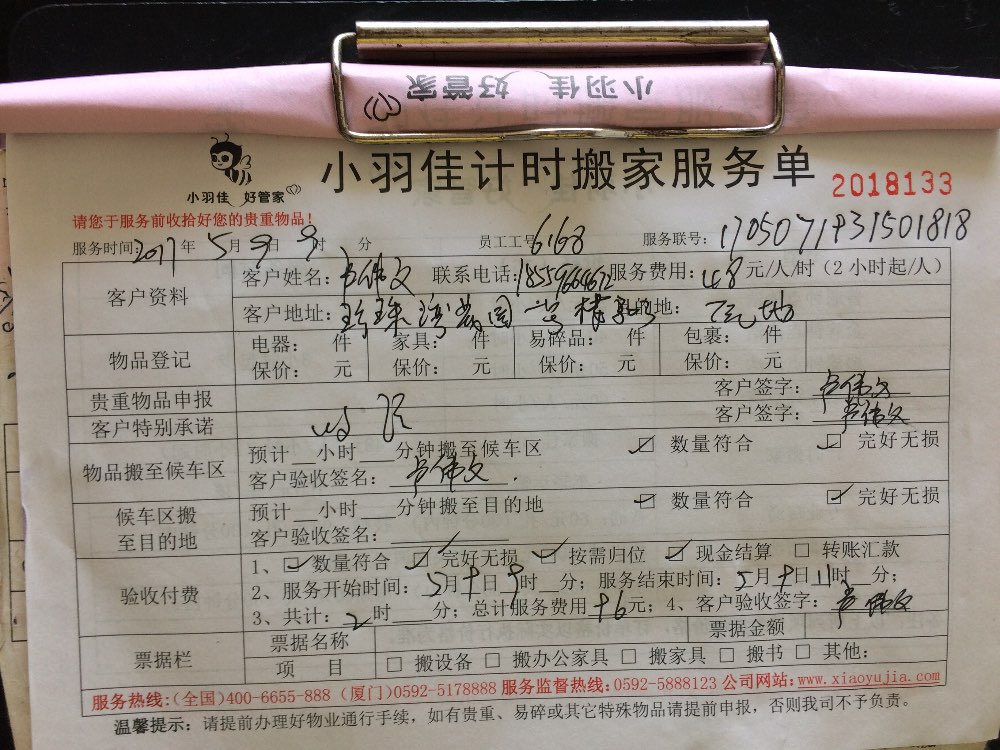 小羽佳 好管家
小羽佳 好管家
小羽佳计时搬家服务单
2018133
请您于服务前收拾好您的贵重物品！
服务时间：2017年5月9日9时 分 员工工号：6168 服务联号：1705071931501818
客户资料
客户姓名：卢伟文 联系电话：服务费用：48元/人/时（2小时起/人）
客户地址：珍珠湾花园 目的地：工地
物品登记
电器： 件 家具： 件 易碎品： 件 包裹： 件
保价： 元 保价： 元 保价： 元 保价： 元
贵重物品申报 客户签字：卢伟文
客户特别承诺 客户签字：卢伟文
物品搬至候车区
预计__小时___分钟搬至候车区 ☑ 数量符合 ☑ 完好无损
客户验收签名：卢伟文
候车区搬至目的地
预计__小时___分钟搬至目的地 ☑ 数量符合 ☑ 完好无损
客户验收签名：
验收付费
1、☑数量符合 ☑完好无损 ☑按需归位 ☑现金结算 □转账汇款
2、服务开始时间：5月9日9时__分；服务结束时间：5月9日11时__分；
3、共计：2时___分；总计服务费用96元；4、客户验收签字：卢伟文
票据栏
票据名称 票据金额
项 目 □ 搬设备 □ 搬办公家具 □ 搬家具 □ 搬书 □ 其他：
服务热线：(全国)400-6655-888 (厦门)0592-5178888 服务监督热线：0592-5888123 公司网站：www.xiaoyujia.com
温馨提示：请提前办理好物业通行手续，如有贵重、易碎或其它特殊物品请提前申报，否则我司不予负责。